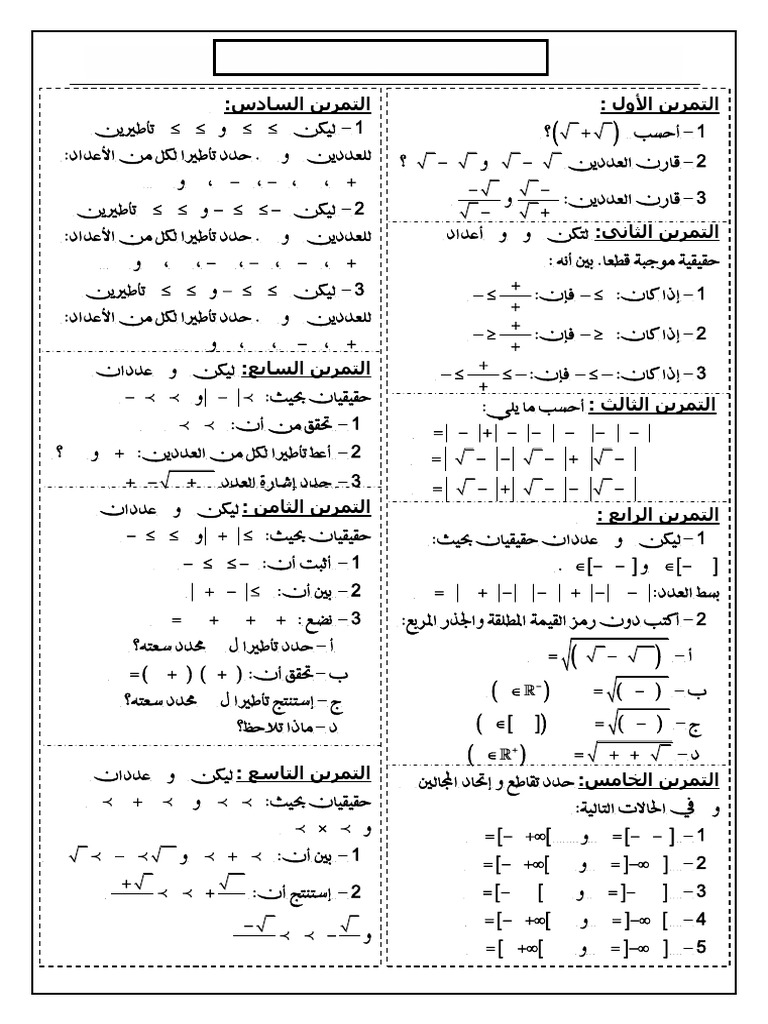 التمرين الأول :
1 – أحسب (√ + √)؟
2 – قارن العددين √ – √ و √ – √ ؟
3 – قارن العددين: و
التمرين الثاني: لتكن و و أعداد
حقيقية موجبة قطعا. بين أنه :
1 – إذا كان: ≥ – فإن:
2 – إذا كان: ≤ – فإن:
3 – إذا كان: – ≥ – ≥ فإن:
التمرين الثالث : أحسب ما يلي:
= | – | + | – | – | – | – | – |
= | √ – | – | √ – | + | √ – |
= | √ – | + | √ – | – | √ – |
التمرين الرابع :
1 – ليكن و عددان حقيقيان بحيث:
∈[– – ] و ∈[– ] .
بسط العدد: = | + | – | – | + | – | |
2 – اكتب دون رمز القيمة المطلقة والجذر المربع:
أ – √(√ – √) =
ب – √( – ) = ( ∈ ℝ⁻ )
ج – √( – ) = ( ∈ [ ] )
د – √( + + √ ) = ( ∈ ℝ⁺ )
التمرين الخامس: حدد تقاطع و إتحاد المجالين
و في الحالات التالية:
1 – =[– – ] و =[– +∞[
2 – =]–∞ ] و =[– +∞[
3 – =]– ] و =[– [
4 – =]–∞ ] و =[– +∞[
5 – =]–∞ ] و =[ +∞[
التمرين السادس:
1 – ليكن ≤ ≤ و ≤ ≤ تأطيرين
للعددين و . حدد تأطيرا لكل من الأعداد:
+ ، ، – ، – ، و
2 – ليكن – ≤ ≤ – و ≤ ≤ تأطيرين
للعددين و . حدد تأطيرا لكل من الأعداد:
+ ، – ، – ، ، ، و
3 – ليكن ≤ ≤ – و ≤ ≤ تأطيرين
للعددين و . حدد تأطيرا لكل من الأعداد:
+ ، – ، ، ، و
التمرين السابع: ليكن و عددان
حقيقيان بحيث: | – | ≺ و ≺ ≺ –
1 – تحقق من أن: ≺ ≺
2 – أعط تأطيرا لكل من العددين: + و ؟
3 – حدد إشارة العدد √ + – +
التمرين الثامن : ليكن و عددان
حقيقيان بحيث: | + | ≤ و ≤ ≤ –
1 – أثبت أن: – ≤ ≤ –
2 – بين أن: | + – | ≤
3 – نضع: = + + +
أ – حدد تأطيرا ل محدد سعته؟
ب – تحقق أن: ( + ) ( + ) =
ج – إستنتج تأطيرا ل محدد سعته؟
د – ماذا تلاحظ؟
التمرين التاسع : ليكن و عددان
حقيقيان بحيث: ≺ ≺ و ≺ + ≺
و ≺ × ≺
1 – بين أن: ≺ + ≺ و √ ≺ – ≺ √
2 – إستنتج أن:
و